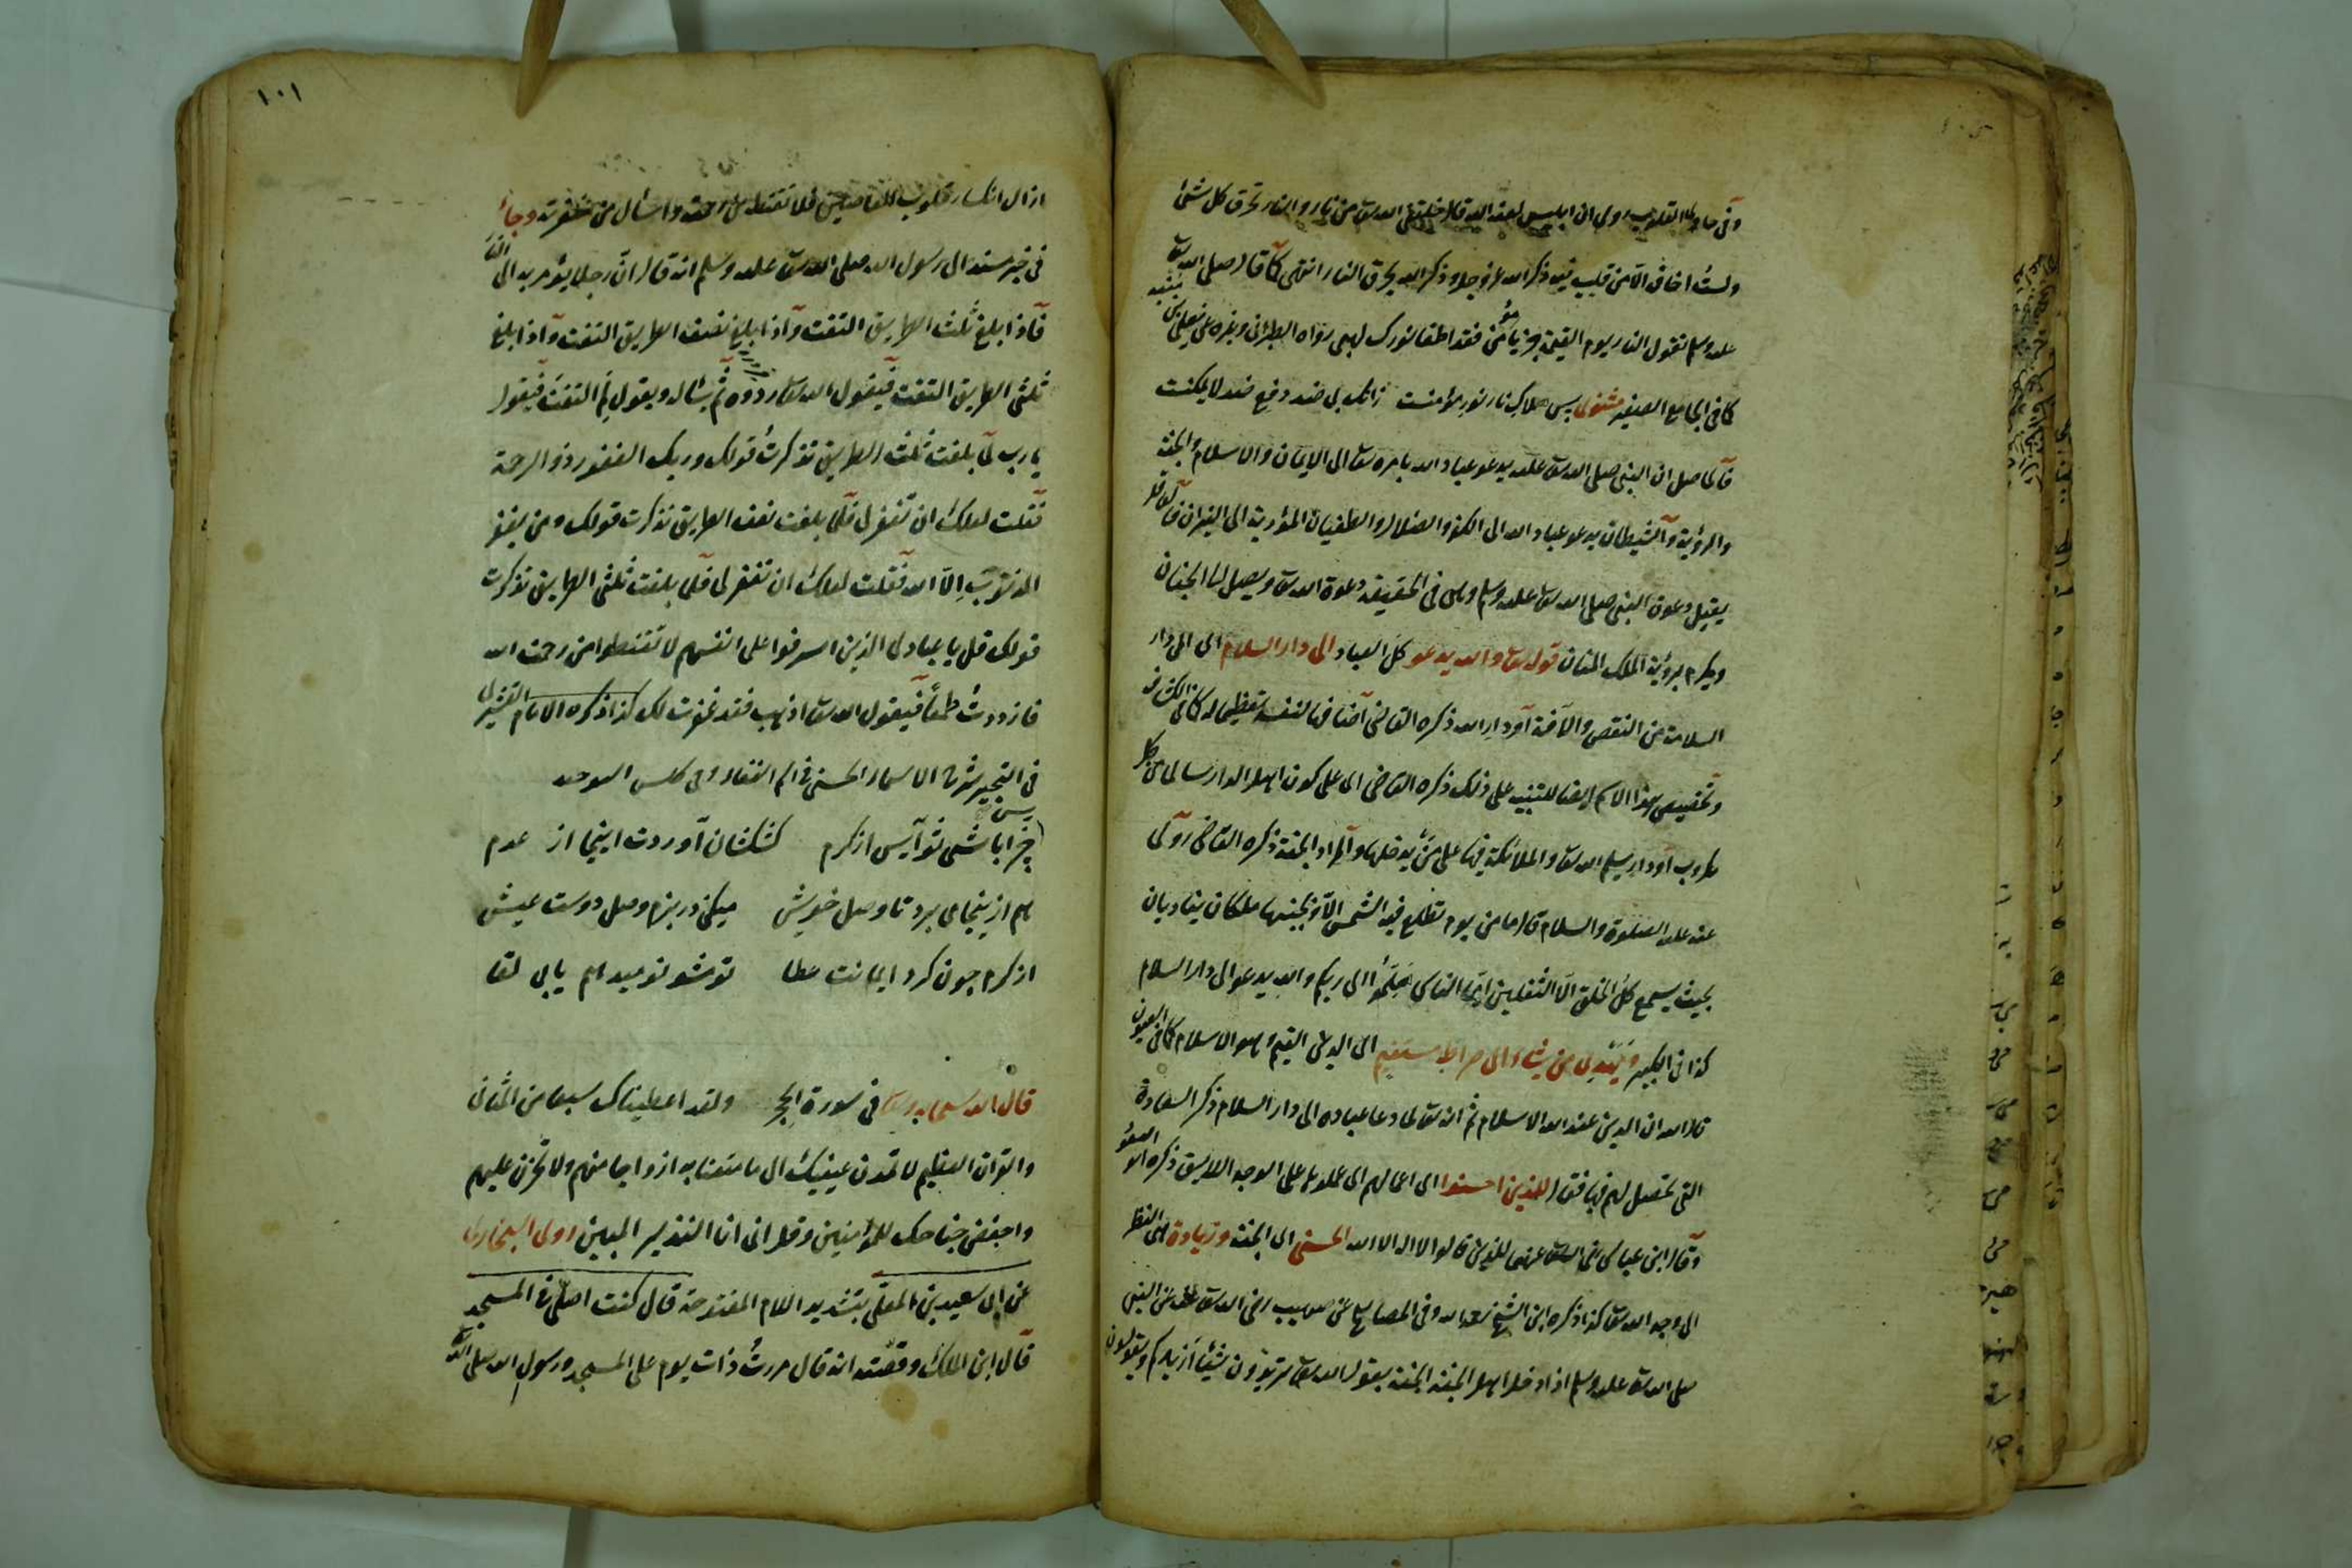 وفي حاوي القلوب روي ان ابليس لعنه الله قال خلقتني الله تع من نار والنار تحرق كل شئ
ولست اخاف الا من قلب فيه ذكر الله عز وجل وذكر الله يحرق النار انتهى كما قال صلى الله تع
عليه وسلم تقول النار يوم القيمة جز يا مؤمن فقد اطفأ نورك لهبي رواه الطبراني وغيره عن يعلى بن منيه
كما في الجامع الصغير مثنوى پس هلاك نار نور مؤمنست زانكه بى ضد دفع ضد لا يمكنست
فالحاصل ان النبي صلى الله تع عليه يدعو عباد الله بامره تع الى الايمان والاسلام والجنة
والرؤية والشيطان يدعو عباد الله الى الكفر والضلال والطغيان المؤدية الى النيران فالعاقل
يقبل دعوة النبي صلى الله تع عليه وسلم وهى في الحقيقة دعوة الله تع ويصل الى الجنان
ويكرم برؤية الملك المنان قوله تع والله يدعو كل العباد الى دار السلام اى الى دار
السلامة من النقص والآفة او دار الله ذكره القاضي اضافها لنفسه تعظيما له كما في الكشاف
وتخصيص هذا الاسم ايضا للتنبيه على ذلك ذكره القاضي اى على كون اهل الدار سالما من كل
مكروب او دار يسلم الله تع والملائكة فيها على من يدخلها والمراد الجنة ذكره القاضي روى
عنه عليه الصلوة والسلام قال ما من يوم تطلع فيه الشمس الا وبجنبيها ملكان يناديان
بحيث يسمع كل الخلق الا الثقلين ايها الناس هلموا الى ربكم والله يدعو الى دار السلام
كذا في الكبير ويهدى من يشاء الى صراط مستقيم اى الدين القيم وهو الاسلام كما في العيون
قال الله ان الدين عند الله الاسلام ثم انه تع لما دعا عباده الى دار السلام ذكر السعادة
التى تحصل لهم فيها فقال للذين احسنوا اى اعمالهم اى عملوها على الوجه اللايق ذكره ابو السعود
وقال ابن عباس رضى الله تع عنهما للذين قالوا لا اله الا الله الحسنى اى الجنة وزيادة هى النظر
الى وجه الله تع كذا ذكره ابن الشيخ رحمه الله وفي المصابيح عن صهيب رضى الله تع عنه عن النبي
صلى الله تع عليه وسلم اذا دخل اهل الجنة الجنة يقول الله تع تريدون شيئا ازيدكم فيقولون
١٠١
ازال انكسار قلوب العاصين فلا تقنط من رحمته واسأل من مغفرته وجاء
في خبر مسند الى رسول الله صلى الله تع عليه وسلم انه قال ان رجلا يؤمر به الى النار
فاذا بلغ ثلث الطريق التفت واذا بلغ نصف الطريق التفت واذا بلغ
ثلثى الطريق التفت فيقول الله تع ردوه ثم يسأله ويقول لم التفت فيقول
يا رب لما بلغت ثلث الطريق تذكرت قولك وربك الغفور ذو الرحمة
فقلت لعلك ان تغفر لى فلما بلغت نصف الطريق تذكرت قولك ومن يغفر
الذنوب الا الله فقلت لعلك ان تغفر لى فلما بلغت ثلثى الطريق تذكرت
قولك قل يا عبادى الذين اسرفوا على انفسهم لا تقنطوا من رحمة الله
فازددت طمعا فيقول الله تع اذهب فقد غفرت لك كذا ذكره الامام القشيرى
في التحبير شرح الاسماء الحسنى في اسم الغفار
پس چرا باشى تو آيس از كرم كشكشان آوردت اينجا از عدم
هم از ينجا مى برد تا وصل خويش ميكن در بزم وصل دوست عيش
از كرم چون كرد ايمانت عطا تو مشو نوميد هم يابى لقا
قال الله سبحانه وتعا في سورة الحجر ولقد اعطيناك سبعا من المثانى
والقران العظيم لا تمدن عينيك الى ما متعنا به ازواجا منهم ولا تحزن عليهم
واخفض جناحك للمؤمنين وقل انى انا النذير المبين روى البخارى
عن ابى سعيد بن المعلى بتشديد اللام المفتوحة قال كنت اصلى في المسجد
قال ابن الملك وقصته انه قال مررت ذات يوم على المسجد ورسول الله صلى الله تع